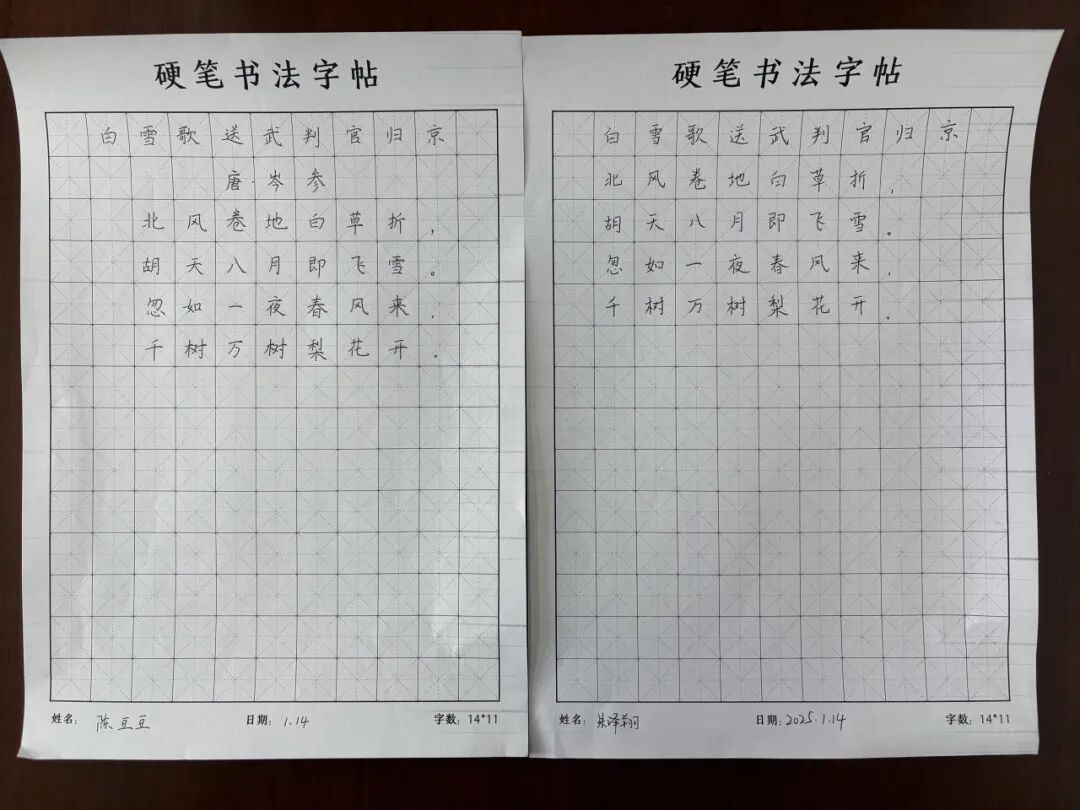 硬笔书法字帖
白雪歌送武判官归京
唐·岑参
北风卷地白草折，
胡天八月即飞雪。
忽如一夜春风来，
千树万树梨花开。
姓名：陈豆豆 日期：1.14 字数：14*11
硬笔书法字帖
白雪歌送武判官归京
北风卷地白草折，
胡天八月即飞雪。
忽如一夜春风来，
千树万树梨花开。
姓名：泽翔 日期：2025.1.14 字数：14*11